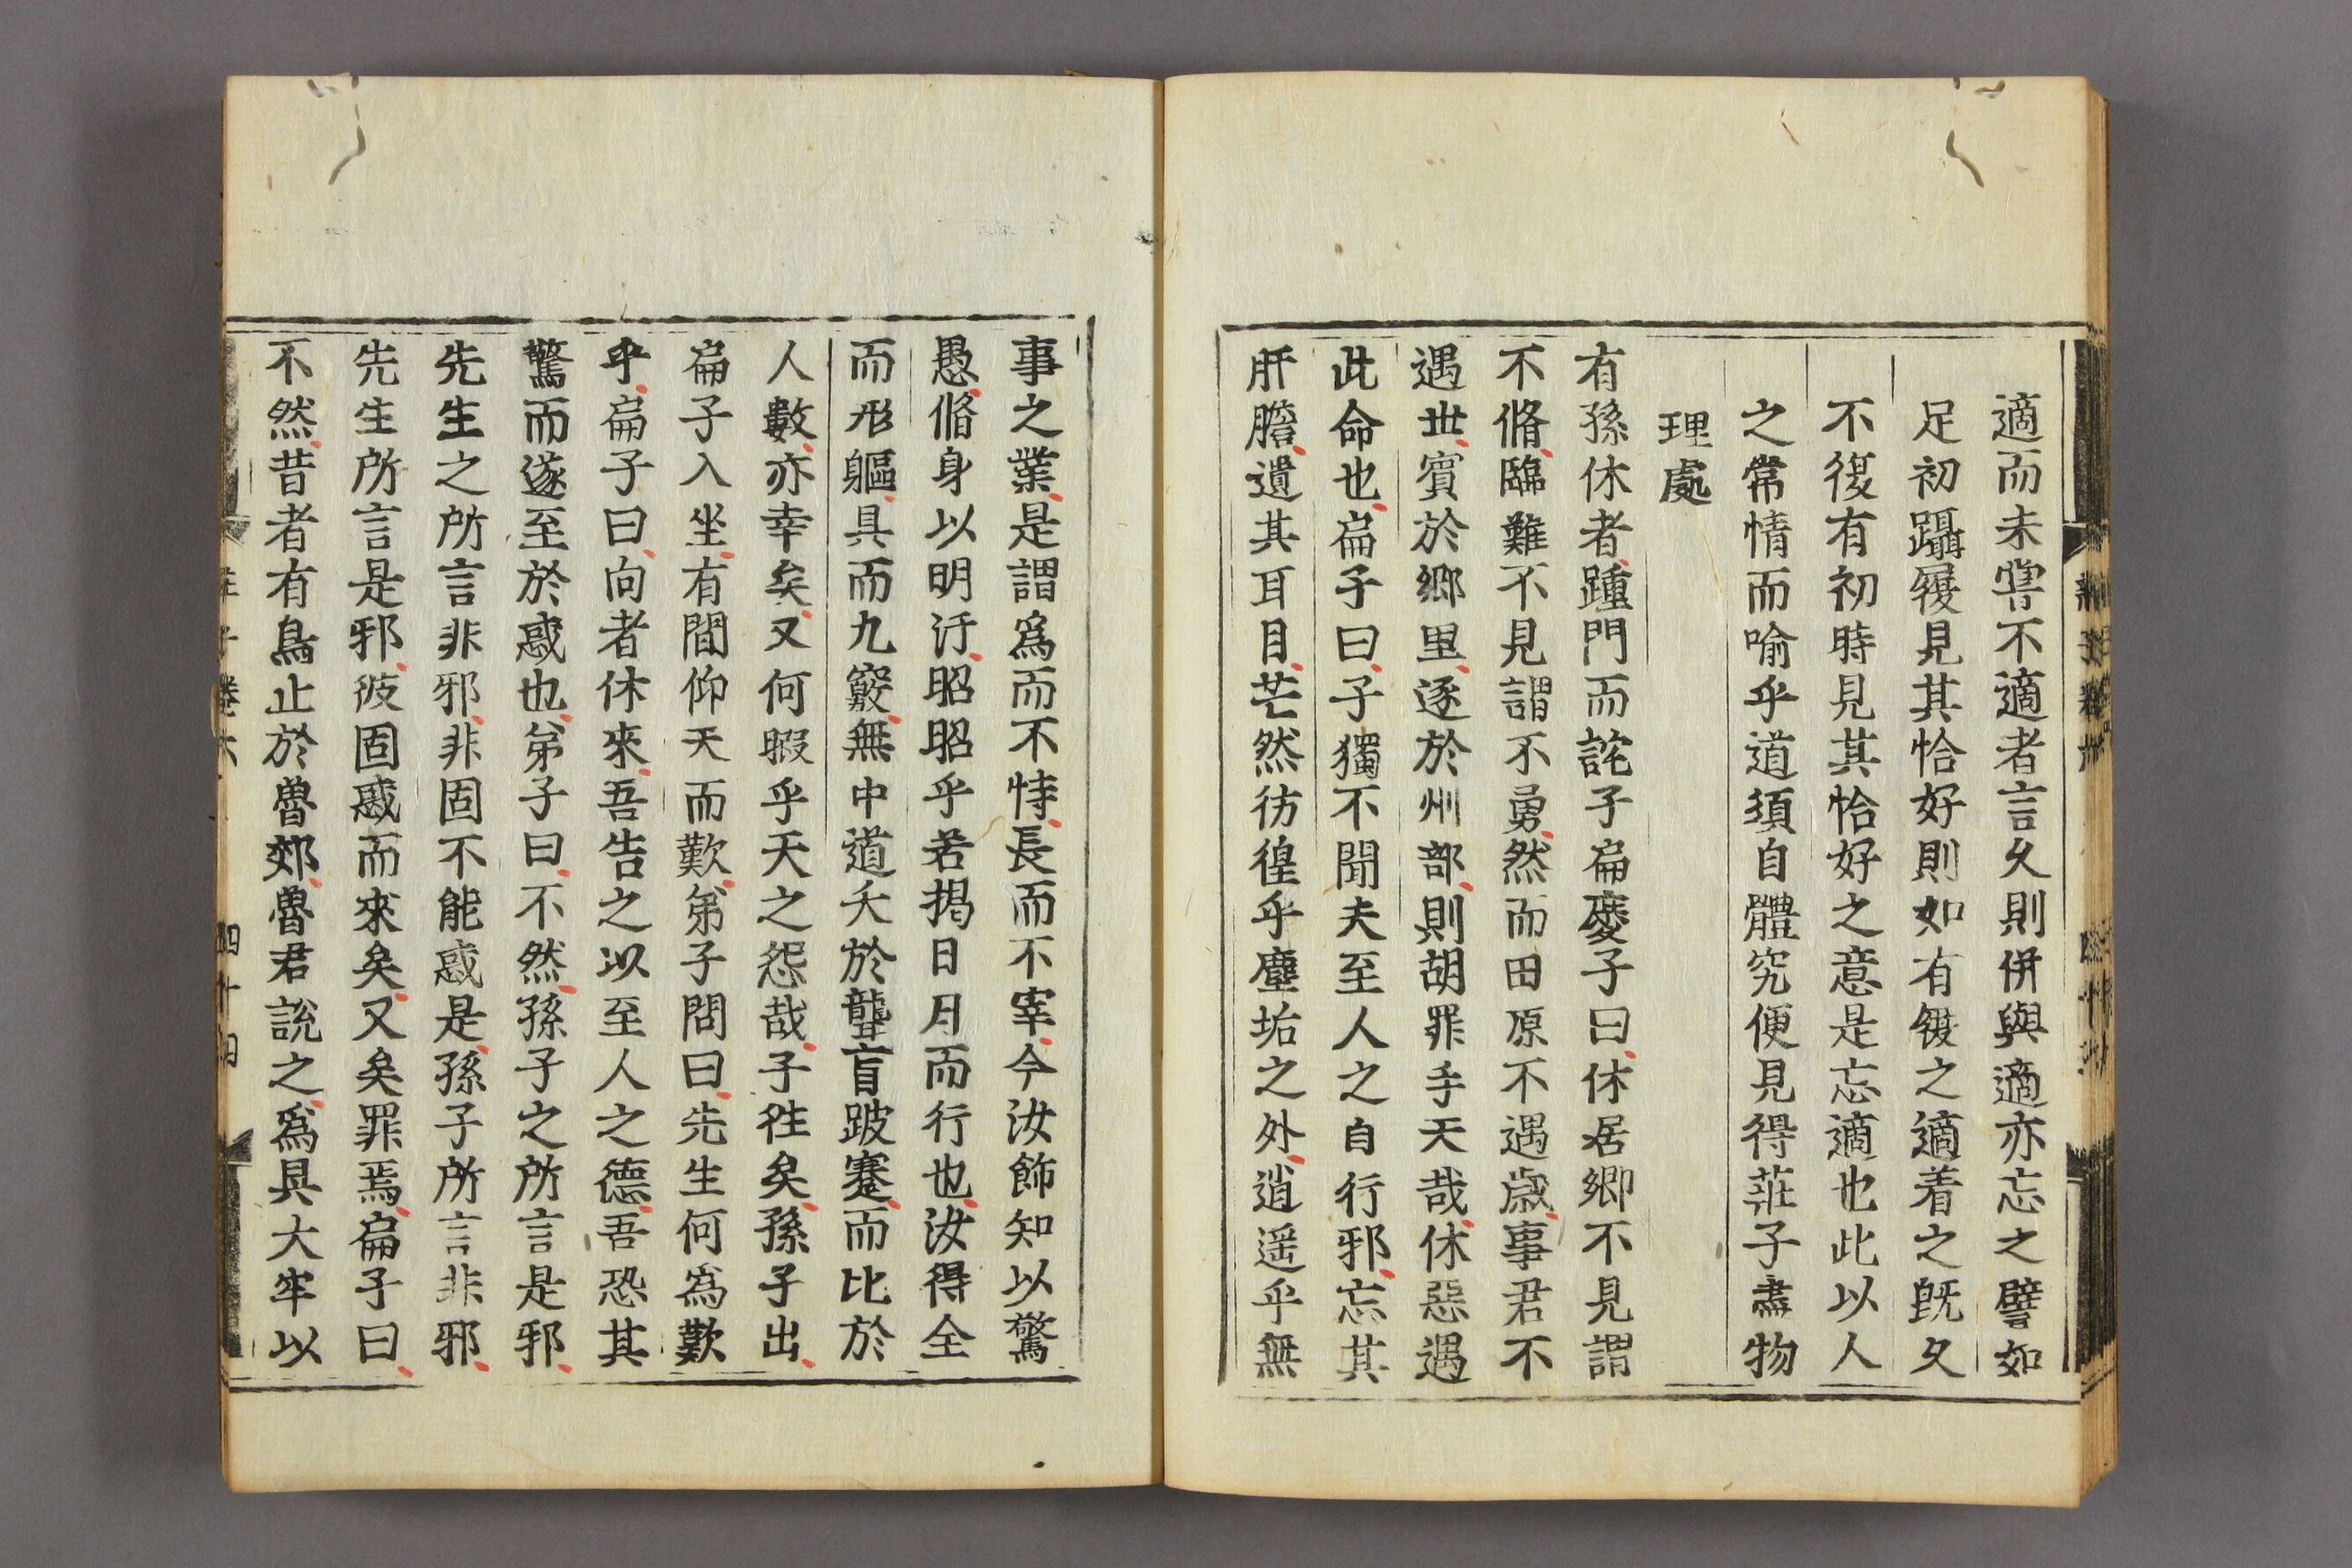 適而未嘗不適者言久則併與適亦忘之譬如
足初躡屐見其恰好則如有鍐之適着之既久
不復有初時見其恰好之意是忘適也此以人
之常情而喻乎道須自體究便見得莊子盡物
理處
有孫休者踵門而詫子扁慶子曰休居鄉不見謂
不脩臨難不見謂不勇然而田原不遇歲事君不
遇世賓於鄉里逐於州部則胡罪乎天哉休惡遇
此命也扁子曰子獨不聞夫至人之自行邪忘其
肝膽遺其耳目芒然彷徨乎塵垢之外逍遥乎無
事之業是謂爲而不恃長而不宰今汝飾知以驚
愚脩身以明汙昭昭乎若揭日月而行也汝得全
而形軀具而九竅無中道夭於聾盲跛蹇而比於
人數亦幸矣又何暇乎天之怨哉子徃矣孫子出
扁子入坐有間仰天而歎弟子問曰先生何爲歎
乎扁子曰向者休來吾告之以至人之德吾恐其
驚而遂至於惑也弟子曰不然孫子之所言是邪
先生之所言非邪非固不能惑是孫子所言非邪
先生所言是邪彼固惑而來矣又矣罪焉扁子曰
不然昔者有鳥止於魯郊魯君說之爲具大牢以
莊子卷六
四十四